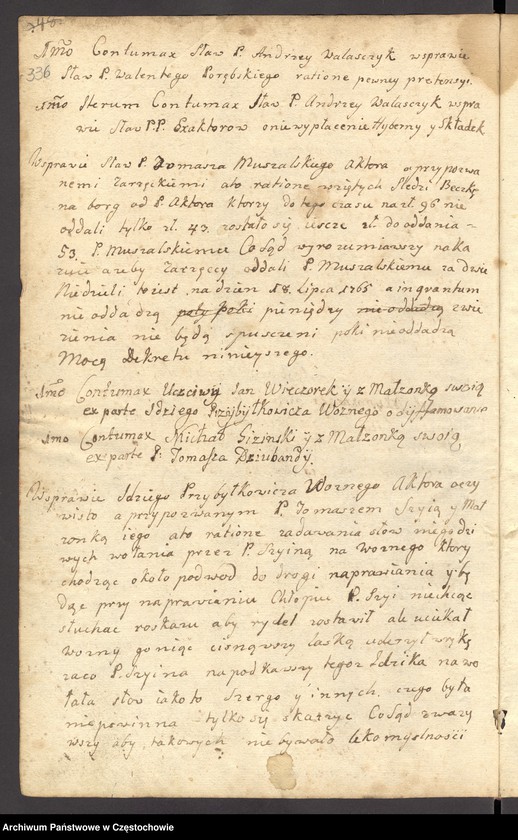 336
1mo Contumax Sław P. Andrzey Walasczyk wsprawie
Sław P. Walentego Porębskiego ratione pewney pretensyi.
1mo Iterum Contumax Sław P. Andrzey Walasczyk wspra
wie Sław P.P. Exaktorow o niewypłacenie Hyberny y Składek
Wsprawie Sław P. Tomasza Muszalskiego Aktora a przypozwa
nemi Zarzęckiemi ato ratione wziętych Sledzi Beczkę
na borg od P. Aktora ktorzy do tego czasu na zł. 96 nie
oddali tylko zł. 43. zostało się ieszcze zł. do oddania =
53. P. Muszalskiemu Co Sąd wyrozumiawszy naka
zuie azeby Zarzęccy oddali P. Muszalskiemu za dwie
Niedzieli to iest na dzien 18 Lipca 1765 a ingrantum
nie oddadzą pieniędzy nie oddadzą zwie
zienia nie będą spuszceni poki nieoddadzą
Mocą Dekretu ninieyszego.
1mo Contumax Uczciwy Jan Wieczorek y z Małzonką swoią
ex parte Idziego Przybyłkowicza Woznego o dyffamowanie
1mo Contumax Michał Gizinski y z Małzonką swoią
ex parte P. Tomasza Dziubandy
Wsprawie Idziego Przybyłkowicza Woznego Aktora oczy
wisto a przypozwanym P. Tomaszem Szyią y Mał
zonką iego ato ratione zadawania słow niegodzi
wych wołania przez P. Szyiną na woznego ktory
chodząc około podwod do drogi naprawiania y bę
dąc przy naprawianiu Chłopiec P. Szyi niechcąc
słuchac roskazu aby rydel zostawił ale uciekał
wozny goniąc cisnąwszy laską uderzył w rękę
zaco P. Szyina napodkawszy tegoz Idzika nawo
łała słow iakoto Szergo y innych. czego była
niepowinna tylko się skarzyc Co Sąd zwazy
wszy aby takowych nie bywało lekomyslnosci
Archiwum Państwowe w Częstochowie